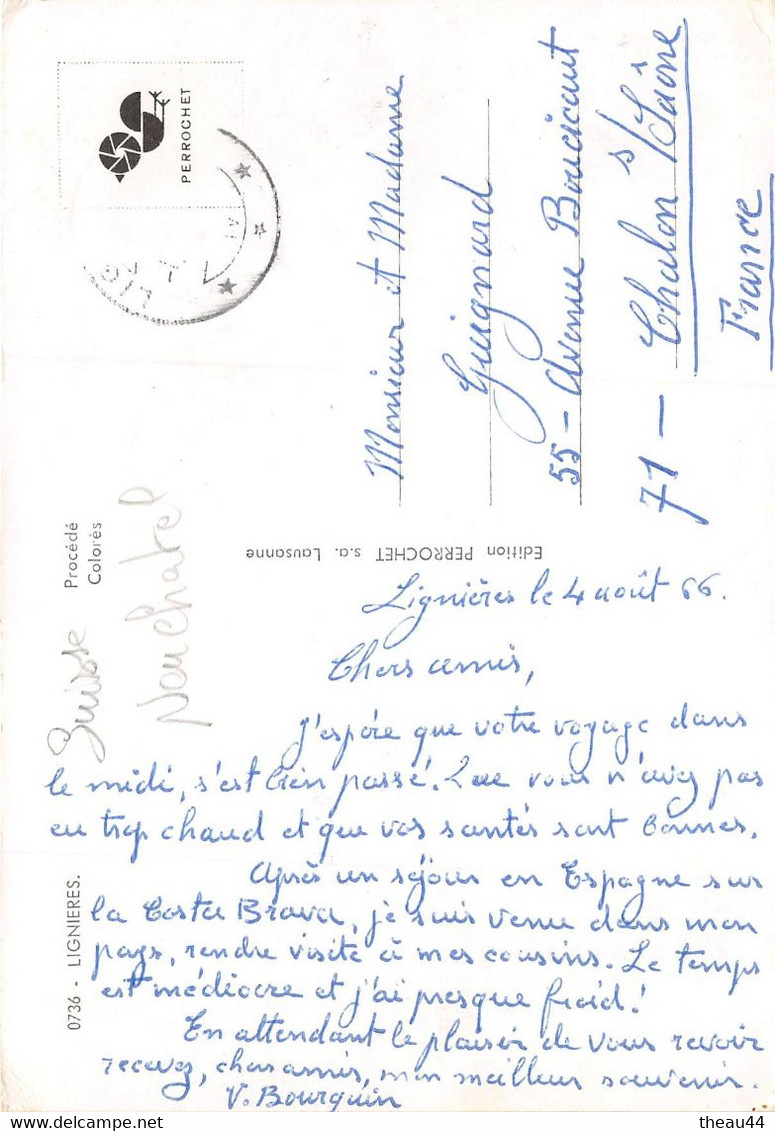 PERROCHET
LIG
Monsieur et Madame
Guignard
55 - Avenue Boucicaut
71 - Chalon s/Saône
France
Procédé
Colorès
Suisse
Neuchatel
Edition PERROCHET s.a. Lausanne
0736 - LIGNIERES.
Lignières le 4 août 66.
Chers amis,
J'espère que votre voyage dans
le midi, s'est bien passé. Que vous n'avez pas
eu trop chaud et que vos santés sont bonnes.
Après un séjour en Espagne sur
la Costa Brava, je suis venue dans mon
pays, rendre visite à mes cousins. Le temps
est médiocre et j'ai presque froid!
En attendant le plaisir de vous revoir
recevez, chers amis, mon meilleur souvenir.
V. Bourquin
theau44